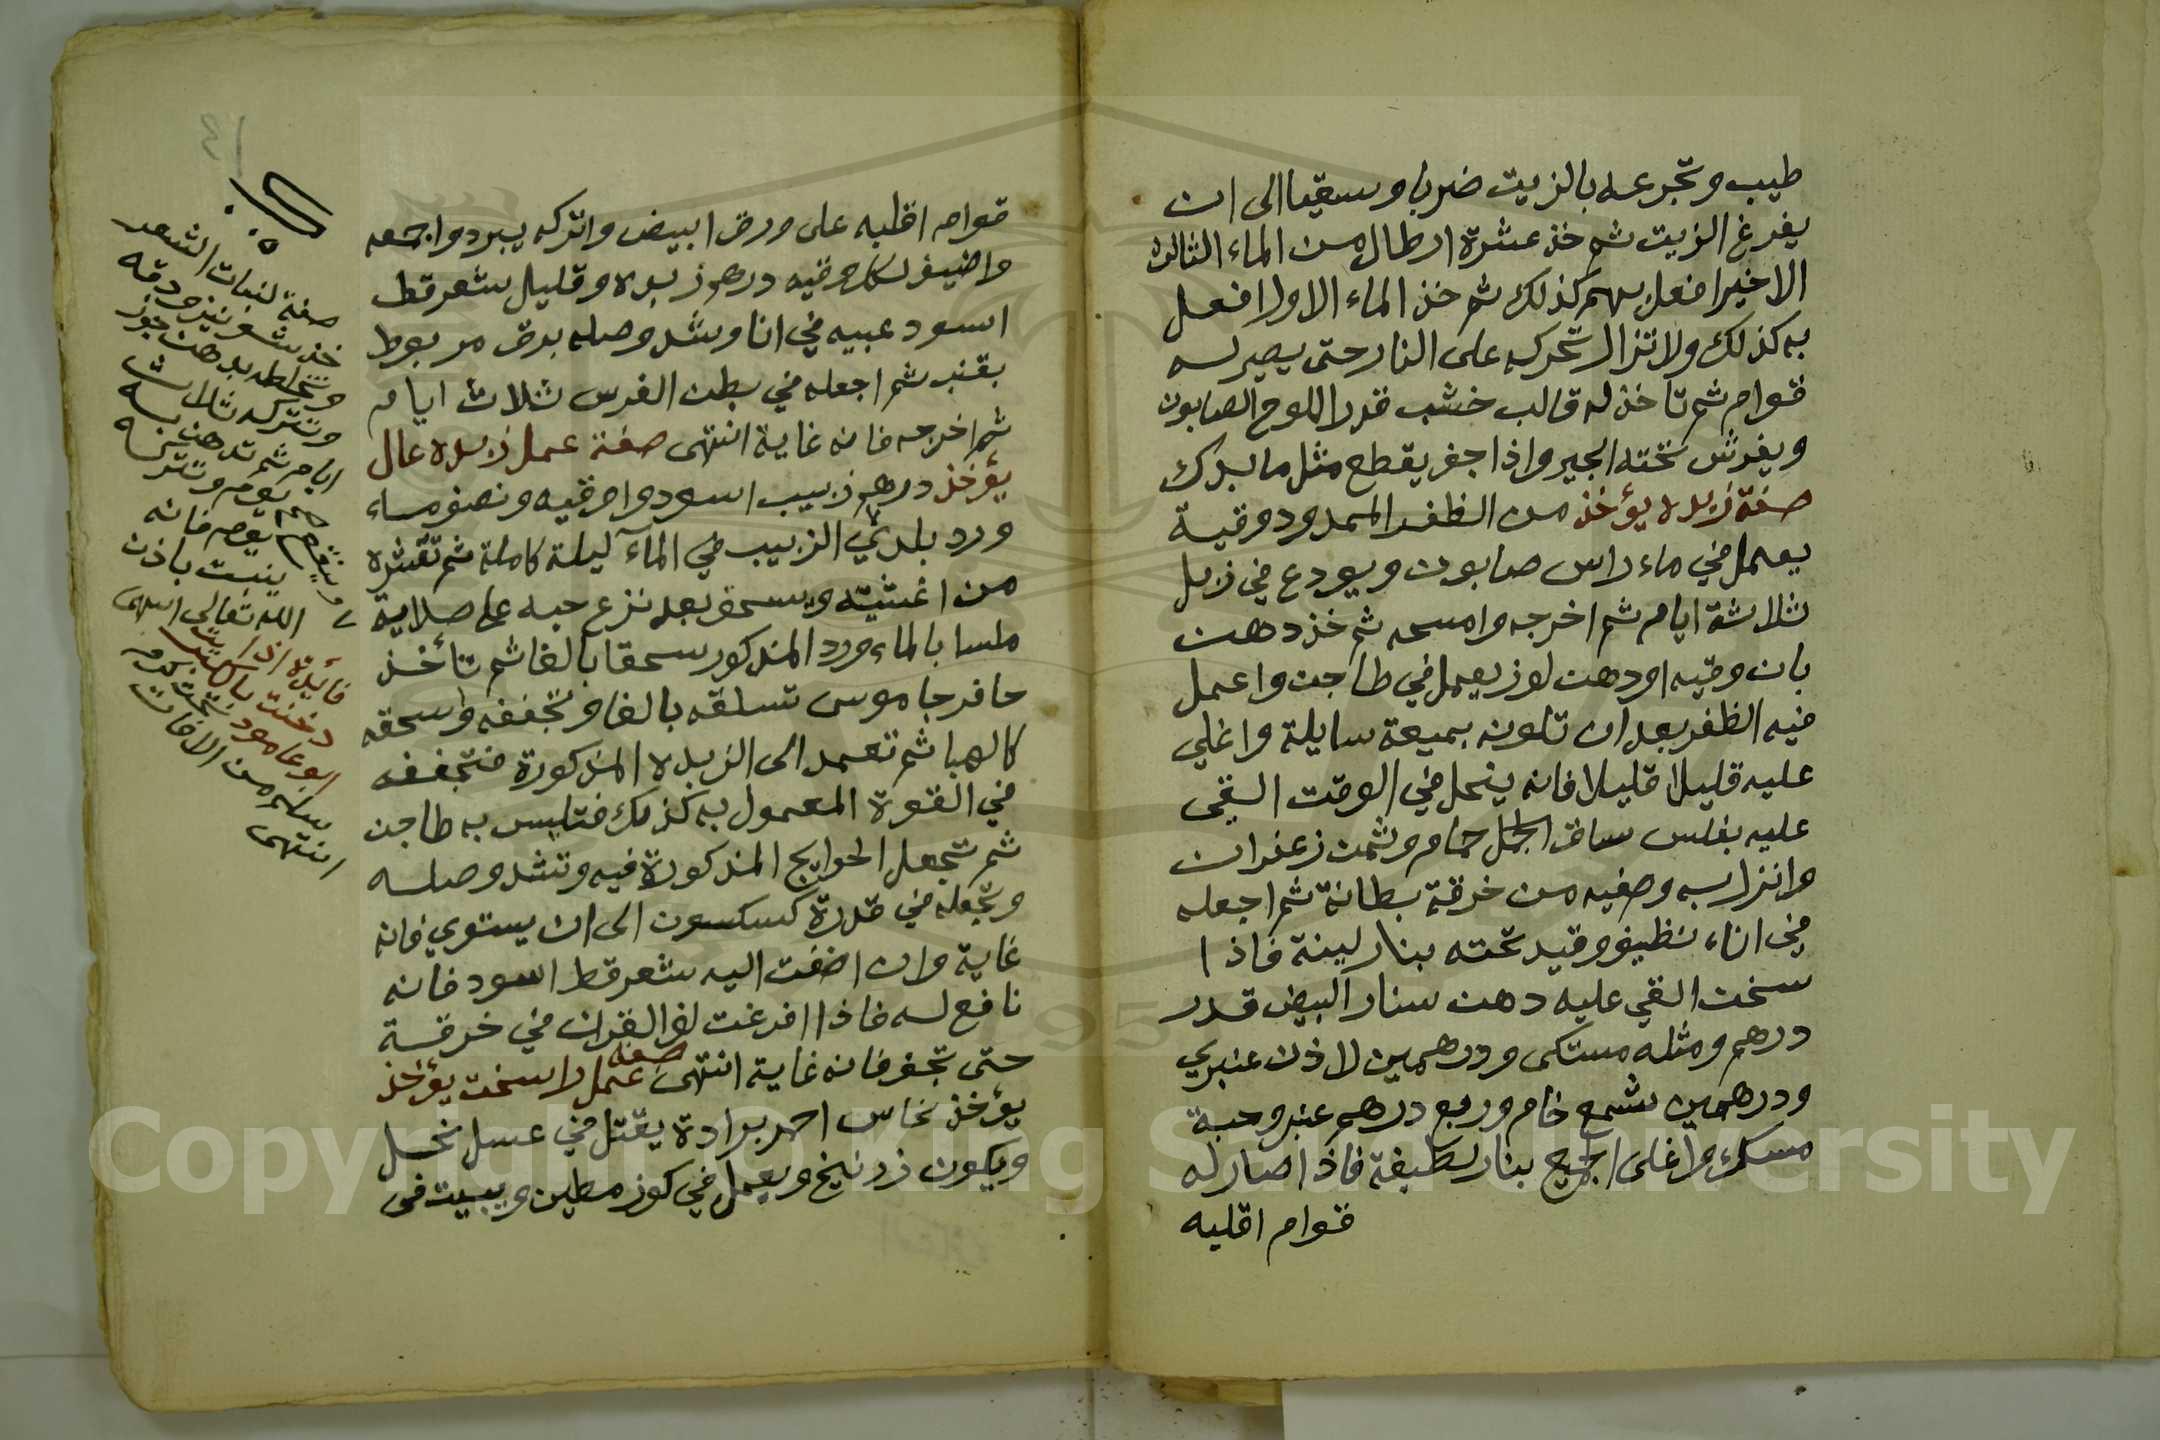 طيب وتجرعه بالزيت ضربا وسقيا الى ان
يفرغ الزيت ثم خذ عشرة ارطال من الماء الثالث
الاخير افعل بهم كذلك ثم خذ الماء الاول افعل
به كذلك ولا تزال تحركه على النار حتى يصير له
قوام ثم تاخذ له قالب خشب قدر اللوح الصابون
ويفرش تحته الجير واذا جف يقطع مثل ما بدك
صفة زبده يؤخذ من الظفر الممدود وقية
يعمل في ماء راس صابون ويودع في زبل
ثلاثة ايام ثم اخرجه وامسحه ثم خذ دهن
بان وقيه او دهن لوز يعمل في طاجن واعمل
فيه الظفر بعد ان تلونه بميعة سايلة واغلي
عليه قليلا قليلا فانه ينحل في الوقت القي
عليه بفلس ساق الحمام وثمن زعفران
وانزل به وصفيه من خرقة بطانة ثم اجعله
في اناء نظيف وقيد تحته بنار لينة فاذا
سخن القي عليه دهن سنار البيض قدر
درهم ومثله مستكى ودرهمين لاذن عنبري
ودرهمين شمع خام وربع درهم عنبر وحبة
مسك واغلى الجميع بنار لطيفة فاذا صار له
قوام اقلبه
قوام اقلبه على ورق ابيض واتركه يبرد واجمعه
واضيف لكل وقيه درهم زبده وقليل شعر قط
اسود عبيه في انا وشد وصله بورق مربوط
بقنب ثم اجعله في بطن الفرس ثلاث ايام
ثم اخرجه فانه غاية انتهى صفة عمل زبده عال
يؤخذ درهم زبيب اسود واوقيه ونصف ماء
ورد بلدي الزبيب في الماء ليلة كاملة ثم تقشره
من اغشيته ويسحق بعد نزع حبه على صلاية
ملسا بالماء ورد المذكور سحقا بالغا ثم تأخذ
حافر جاموس تسلقه بالغا وتجففه واسحقه
كالهبا ثم تعمد الى الزبده المذكورة فتجففه
في القوة المعمول به كذلك فتلبس به طاجن
ثم تجعل الحوايج المذكورة فيه وتشد وصله
وتجعله في قدرة كسكسون الى ان يستوي فانه
غاية وان اضفت اليه شعر قط اسود فانه
نافع له فاذا افرغت لف القران في خرقة
حتى تجف فانه غاية انتهى صفة عمل راسخت يؤخذ
يؤخذ نحاس احمر برادة يقتل في عسل نحل
ويكون زرنيخ ويعمل في كوز مطين ويبيت في
٤١
صفة لنبات الشعر
خذ شونيز ودقه
وتخلطه بدهن جوز
وتتركه ثلاث
ايام ثم تدهن به
يوم وتتركه
يوم فانه
ينبت باذن
الله تعالى انتهى
فائدة اذا
دخنت بالكبريت
ابو عامود تحت كرمه
سلم من الافات
انتهى
Copyright © King Saud University